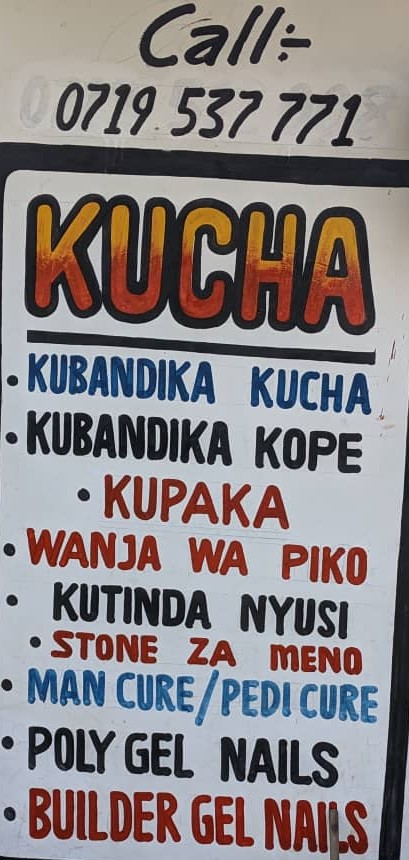 Call:-
0719 537 771
KUCHA
• KUBANDIKA KUCHA
• KUBANDIKA KOPE
• KUPAKA
• WANJA WA PIKO
• KUTINDA NYUSI
• STONE ZA MENO
• MAN CURE/PEDI CURE
• POLY GEL NAILS
• BUILDER GEL NAILS